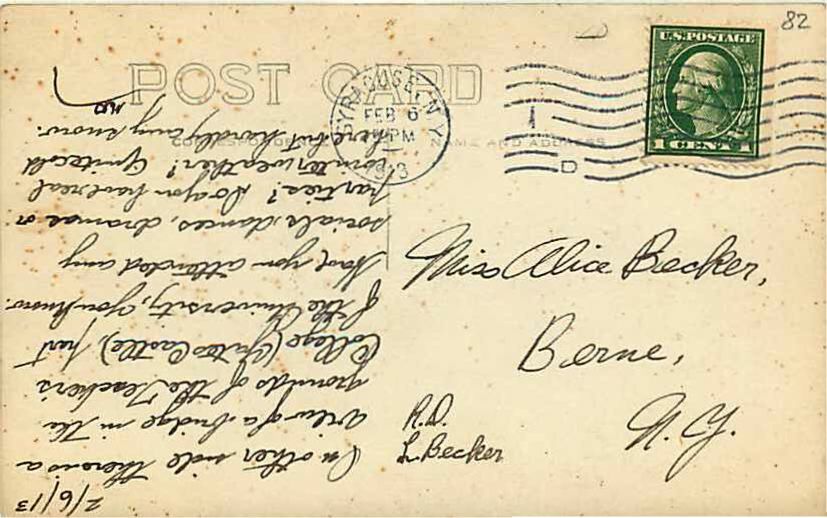 82
U.S. POSTAGE
1 CENT 1
POST CARD
SYRACUSE, N.Y.
FEB 6
PM
1913
D
CORRESPONDENCE
NAME AND ADDRESS
Miss Alice Becker,
Berne,
N.Y.
R.D.
L. Becker
2/6/13
On other side there is a
view of a bridge in the
grounds of the Teachers
College (Yates Castle) part
of the University, you know.
Have you attended any
socials, dances, dramas or
parties? Do you have real
winter weather? Quite cold
here but hardly any snow.